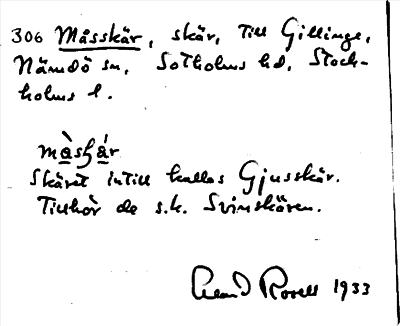 306 Måsskär, skär, till Gillinge,
Nämdö sn, Sotholms hd, Stock-
holms l.
Skäret intill kallas Gjusskär.
Tillhör de s.k. Svinskären.
1933